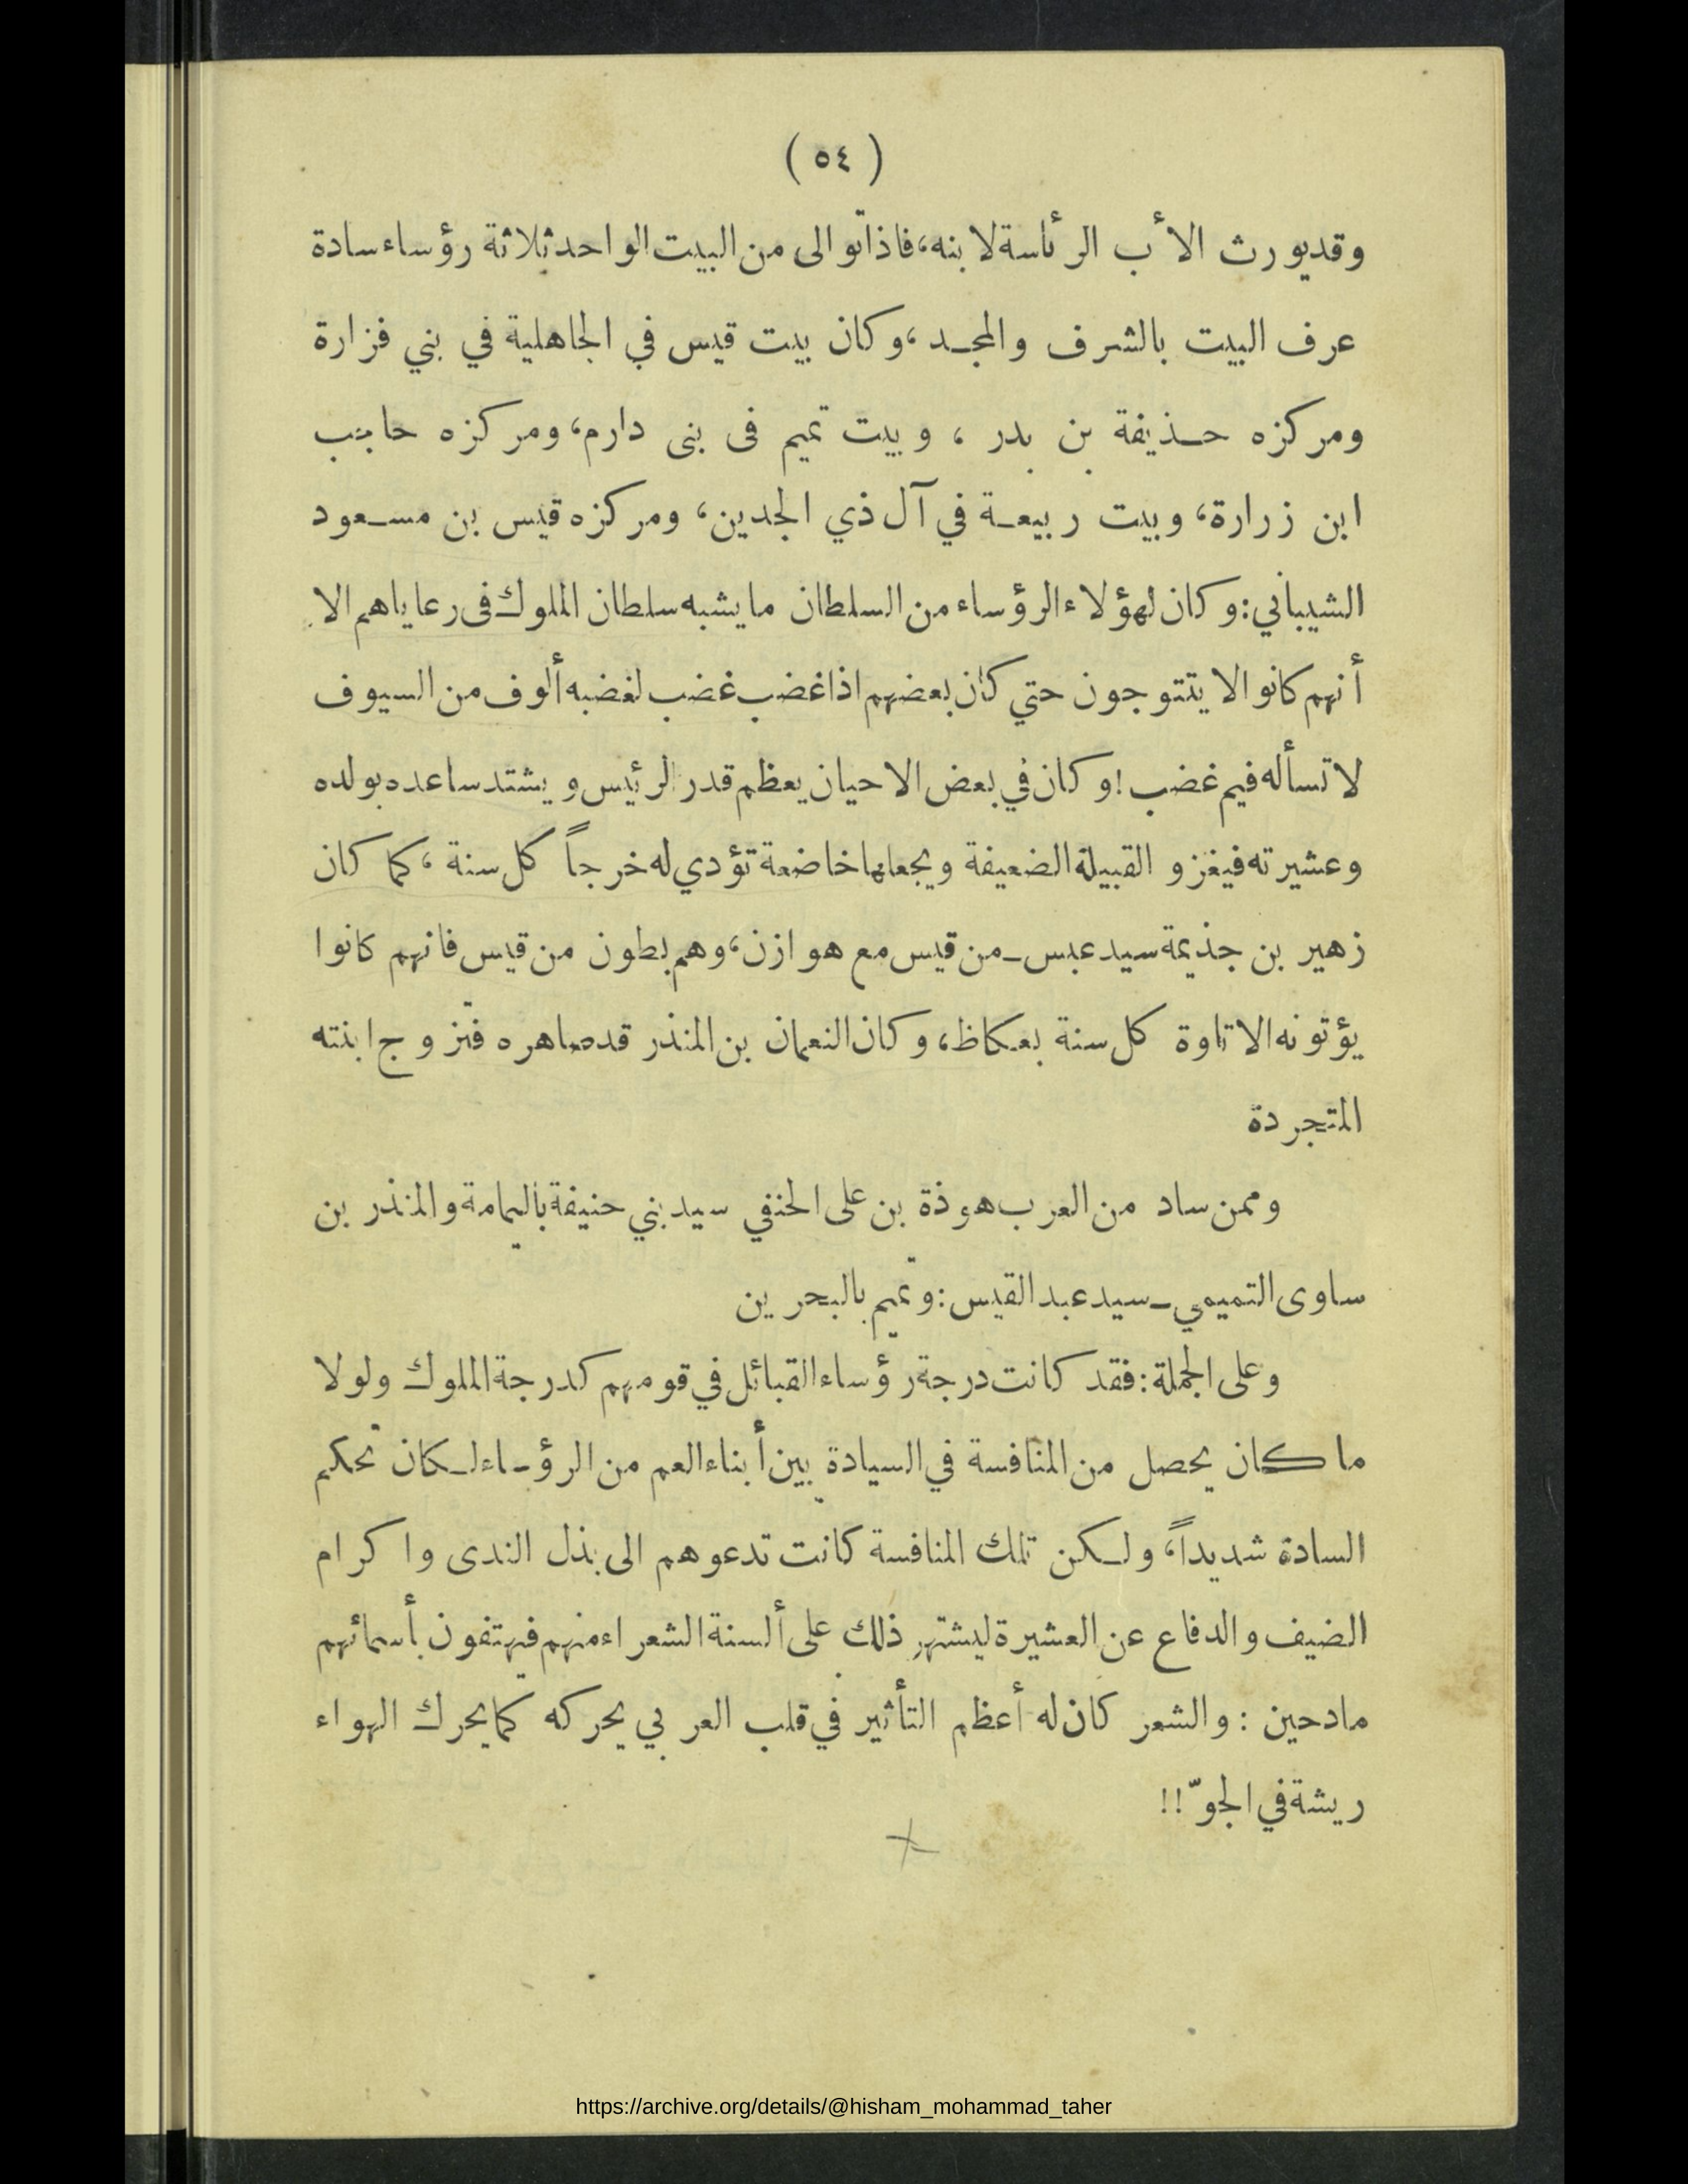 ( ٥٤ )
وقد يورث الأب الرئاسة لابنه، فاذا توالى من البيت الواحد ثلاثة رؤساء سادة
عرف البيت بالشرف والمجد، وكان بيت قيس في الجاهلية في بني فزارة
ومركزه حذيفة بن بدر ، وبيت تميم فى بنى دارم، ومركزه حاجب
ابن زرارة، وبيت ربيعة في آل ذي الجدين، ومركزه قيس بن مسعود
الشيباني: وكان لهؤلاء الرؤساء من السلطان ما يشبه سلطان الملوك فى رعاياهم الا
أنهم كانوا لا يتتوجون حتي كان بعضهم اذا غضب غضب لغضبه ألوف من السيوف
لا تسأله فيم غضب! وكان في بعض الاحيان يعظم قدر الرئيس ويشتد ساعده بولده
وعشيرته فيغزو القبيلة الضعيفة ويجعلها خاضعة تؤدي له خرجاً كل سنة ، كما كان
زهير بن جذيمة سيد عبس ـ من قيس مع هوازن، وهم بطون من قيس فانهم كانوا
يؤتونه الاتاوة كل سنة بعكاظ، وكان النعمان بن المنذر قد صاهره فتزوج ابنته
المتجردة
وممن ساد من العرب هوذة بن على الحنفي سيد بني حنيفة باليمامة والمنذر بن
ساوى التميمي ـ سيد عبد القيس: وتميم بالبحرين
وعلى الجملة: فقد كانت درجة رؤساء القبائل في قومهم كدرجة الملوك ولولا
ما كان يحصل من المنافسة في السيادة بين أبناء العم من الرؤساء لكان تحكم
السادة شديداً، ولكن تلك المنافسة كانت تدعوهم الى بذل الندى واكرام
الضيف والدفاع عن العشيرة ليشتهر ذلك على ألسنة الشعراء منهم فيهتفون بأسمائهم
مادحين : والشعر كان له أعظم التأثير في قلب العربي يحركه كما يحرك الهواء
ريشة في الجوّ!!
https://archive.org/details/@hisham_mohammad_taher